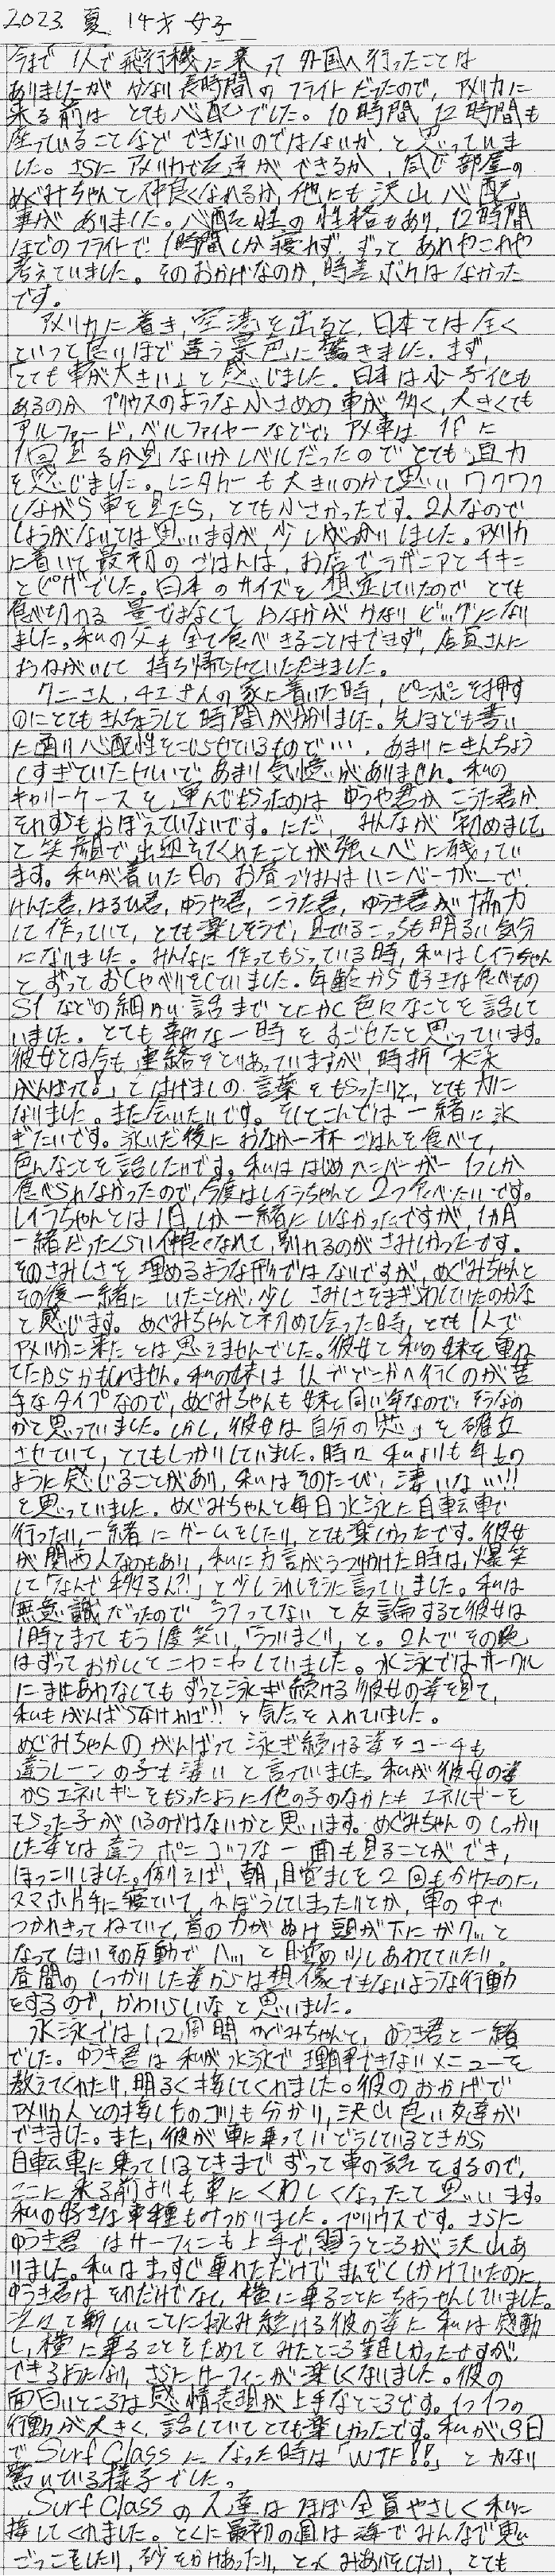 2023. 夏 14才 女子
今まで1人で飛行機に乗って外国へ行ったことは
ありましたが かなり長時間のフライトだったので、アメリカに
来る前は とても心配でした。10時間、12時間も
座っていることなど できないのではないか と思っていま
した。さらにアメリカで友達ができるか、同じ部屋の
めぐみちゃんと仲良くなれるか、他にも沢山 心配
事がありました。心配性の性格もあり、12時間
ほどのフライトで1時間しか寝れず、ずっと あれやこれや
考えていました。そのおかげなのか、時差ボケはなかった
です。
アメリカに着き、空港を出ると、日本では全く
といって良いほど違う景色に驚きました。まず、
「とても車が大きい」と感じました。日本は少子化も
あるのか プリウスのような小さめの車が多く、大きくても
アルファード、ベルファイヤーなどで、アメ車は 1年に
1回見るか見ないかレベルだったのでとても迫力
を感じました。レンタカーも大きいのかと思い ワクワク
しながら車を見たら、とても小さかったです。2人なので
しょうがないとは思いますが 少しがっかりしました。アメリカ
に着いて最初のごはんは、お店でラザニアとチキン
とピザでした。日本のサイズを想定していたので とても
食べ切れる 量ではなくて おなかが かなり ビッグになり
ました。私の父も全て食べきることはできず、店員さんに
おねがいして 持ち帰らせていただきました。
クニさん、チエさんの家に着いた時、ピンポンを押す
のにとてもきんちょうして 時間が掛りました。先ほども書い
た通り 心配性をこじらせているもので…、あまりにきんちょう
しすぎていたせいで あまり気憶がありません。私の
キャリーケースを運んでもらったのは ゆうや君か こうた君か
それすらもおぼえていないです。ただ、みんなが「初めまして」
と笑顔で出迎えてくれたことが強く心に残ってい
ます。私が着いた日の お昼ごはんは ハンバーガーで、
けんた君、はるひ君、ゆうや君、こうた君、ゆうき君が協力
して作っていて、とても楽しそうで、見ているこっちも明るい気分
になりました。みんなに作ってもらっている時、私はレイラちゃん
とずっとおしゃべりをしていました。年齢から好きな食べもの
などの細かい話まで とにかく色々なことを話して
いました。とても幸せな一時をすごせたと思っています。
彼女とは今も連絡をとりあっていますが、時折「水泳
がんばって。」とはげましの言葉をもらったりと、とても力に
なりました。また会いたいです。そしてこんどは 一緒に泳
ぎたいです。泳いだ後に おなか一杯 ごはんを食べて、
色んなことを話したいです。私は はじめ ハンバーガー 1つしか
食べられなかったので、今度はレイラちゃんと 2つ食べたいです。
レイラちゃんとは1日しか一緒に いなかったですが、1カ月
一緒だったくらい仲良くなれて、別れるのがさみしかったです。
そのさみしさを 埋めるような形ではないですが、めぐみちゃんと
その後一緒に いたことが、少し さみしさをまぎらわしていたのかな
と感じます。めぐみちゃんと初めて会った時、とても1人で
アメリカに来た とは思えませんでした。彼女と私の妹を重ね
てたからかもしれません。私の妹は 1人でどこかへ行くのが苦
手なタイプなので、めぐみちゃんも妹と同い年なので、そうなの
かと思っていました。しかし、彼女は自分の「芯」を確立
させていて、とてもしっかりしていました。時々 私よりも年上の
ように感じることがあり、私はそのたび、凄いな…!!
と思っていました。めぐみちゃんと毎日水泳に自転車で
行ったり、一緒に ゲームをしたり、とても楽しかったです。彼女
が関西人なのもあり、私に方言がうつりかけた時は、爆笑
して「なんで移るん?!」と少しうれしそうに言っていました。私は
無意識だったので うつってない と反論すると彼女は
1時とまって もう1度笑い、「うつりまくり」と。2人でその晩
はずっておかしくてニヤニヤしていました。水泳ではサークル
にまにあわなくても ずっと泳ぎ続ける 彼女の姿を見て、
私もがんばらなければ!! と気合を入れていました。
めぐみちゃんの がんばって 泳ぎ続ける姿をコーチも
違うレーンの子も凄い と言っていました。私が彼女の姿
からエネルギーをもらったように他の子のなかにも エネルギーを
もらった子がいるのではないかと思います。めぐみちゃんの しっかり
した姿とは違うポンコツな一面も見ることができ、
ほっこりしました。例えば、朝、目覚ましを2回もかけたのに、
スマホ片手に寝ていて、ねぼうしてしまったりとか、車の中で
つかれきってねていて、首の力がぬけ頭が下にガクッと
なってはいその反動で ハッ と目覚め 少しあわてていたり。
昼間の しっかりした姿からは想像できないような行動
をするので、かわいらしいなと思いました。
水泳では1、2週間 めぐみちゃんと、ゆうき君と一緒
でした。ゆうき君は 私が水泳で 理解できないメニューを
教えてくれたり、明るく接してくれました。彼のおかげで
アメリカ人との接しかたのコツも分かり、沢山 良い友達が
できました。また、彼が車に乗って いどうしているときから
自転車に乗っているときまで ずっと 車の話をするので、
ここに来る前よりも車に くわしくなったと思います。
私の好きな車種もみつかりました。プリウスです。さらに
ゆうき君はサーフィンも上手で、習うところが沢山あ
りました。私はまっすぐ乗れただけでまんぞくしかけていたのに、
ゆうき君は それだけでなく、横に乗ることにちょうせんしていました。
次々と新しいことに挑み続ける彼の姿に 私は感動
し、横に乗ることをためしてみたところ難しかったですが
できるようになり、さらにサーフィンが楽しくなりました。彼の
面白いところは感情表現が上手なところです。1つ1つの
行動が大きく、話していてとても楽しかったです。私が、9日
で Surf Class になった時は「WTF!!」と かなり
驚いている様子でした。
Surf Class の人達は ほぼ全員やさしく私に
接してくれました。とくに最初の週は海でみんなで鬼
ごっこをしたり、砂をかけあったり、とっくみあいをしたり、とても